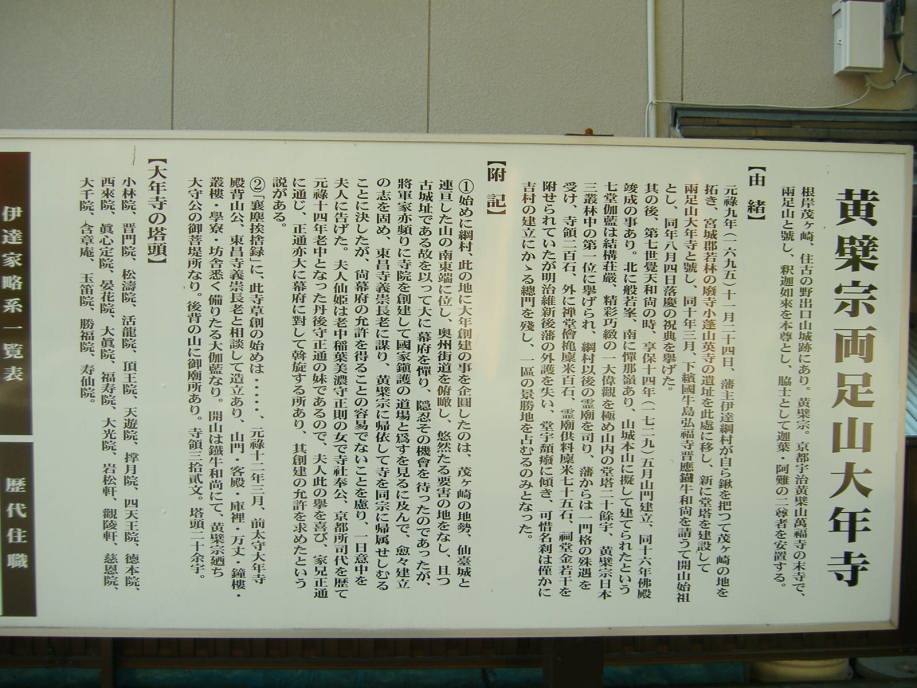 黄檗宗両足山大年寺
根岸茂ヶ崎、往古の野出口山城跡にあり。黄檗宗。京都宇治黄檗山萬福寺の末寺で、
両足山と號し、釈迦如来を本尊とし、脇士として迦葉・阿難の二尊者を安置する。
【由緒】
元禄九年(一六九五)十一月二十四日、藩主伊達綱村が自ら鍬を把つて茂ヶ崎の地を
拓き、宮城郡若林の廢寺小蓬山英寺の遺址を此處に移し、新に堂塔を建設して
両足山大年寺と號し、同十年三月、下總國牛島弘福寺晋應鐵牛和尚を請うて開山始祖
とし、同年八月四日落慶の祝典を擧げた。
其の後、第七世覺天和尚の時、享保十四年(一七二九)五月山門建立、同十六年佛殿
竣成の事あり。北に般若峯、南に憚那嶺あり、山城本山に擬して建てられたという
七堂伽藍は結構荘厳、精彩巧緻の一大偉觀を極め山内の堂塔二十餘宇、黄檗宗日本
三叢林中の第一位に擧げられ、綱村以後の霊廟を司り、藩からは一門格の殊遇を
受け、寺領二百石、外に禅堂僧桅廩米百石、霊廟供料廩米七十五石、祠堂金若干を
附せられていたが明治維新後藩の外護を失い、堂宇頽癈に傾き、可惜名刹は僅かに
吉村の建立にかゝる總門を残し、一區の景勝地を占むるのみとなった。
【附記】
①始めに綱村、此の地に大年創建の事を企圖したのは、茂ヶ崎の地勢、仙臺城と
連亘した山の南東端に位し、奥州街道を俯瞰し、悠然たる要害の地をなし、且つ
古城址である故を以って大に幕府を憚り、隠忍その機會を待ったのであったが、
將軍家亦頻りに寺院を創建して國家鎮護の道場と爲すを見るに及んで、愈々建立
の志を固め、東昌寺義崇長老に謀り、黄檗宗に帰依して寺を同宗に帰属せしむる
ことに決したが、尚幕府の允許を得ることの容易でないことを慮り、一日意中を
夫人に告げた。夫人仙姫は老中稲葉美濃守正則の女で寺社奉公、京都所司代を歴て
元禄十四年老中となった丹後守正通の妹であるので、夫人此の擧を喜び、家兄正通
に通じ、正通亦大に幕府に對して斡旋する所あり、其創建の允許を求めたという
説がある。
②「襄塵挨捨録」に、此寺草創の始めは・・・・、元禄十二年三月、前太守大年寺
殿肯山公、東昌寺義崇長老と相談して造立あり、山門・客殿・庫裡・方丈・鐘樓・
叢樓・學寮・坊舎悉く備りたる大伽藍なり。開山は鐵牛和尚にて、黄檗宗廼ち
大守公の御菩堤所なり。後背の山に御廟所あり。寺領三拾貮文。塔頭二十余宇。
【大年寺の塔頭】
小林院、晋門院、松濤院、活龍院、頂王院、天遊院、捀月院、四天王院、徳本院、
西來院、眞心定院、晏花院、大眞院、福寿院、大光院、岩松軒、觀陵軒、慈恩院、
大千院、含章庵、玉笛院、勝福院、寿仙院。
伊達家略系一覧表
歴代住職